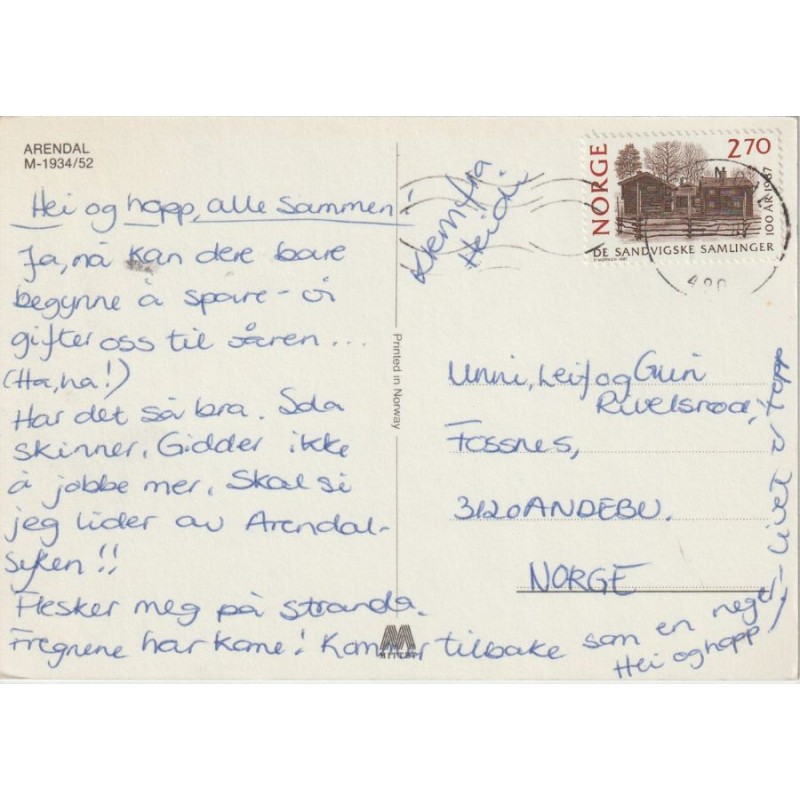 ARENDAL
M-1934/52
Hei og hopp, alle sammen!
Ja, nå kan dere bare
begynne å spare - vi
gifter oss til våren...
(Ha, ha!)
Har det så bra. Sola
skinner. Gidder ikke
å jobbe mer. Skal si
jeg lider av Arendal-
syken!!
Flesker meg på stranda.
Fregnene har kome! Kommer tilbake som en neger,
Hei og hopp, livet er topp
Klem fra
Heidi.
Printed in Norway
NORGE
2.70
100 ÅR 1987
DE SANDVIGSKE SAMLINGER
Unni, Leif og Guri
Rivelsrød,
Fossnes,
3120 ANDEBU.
NORGE
M
MITTET